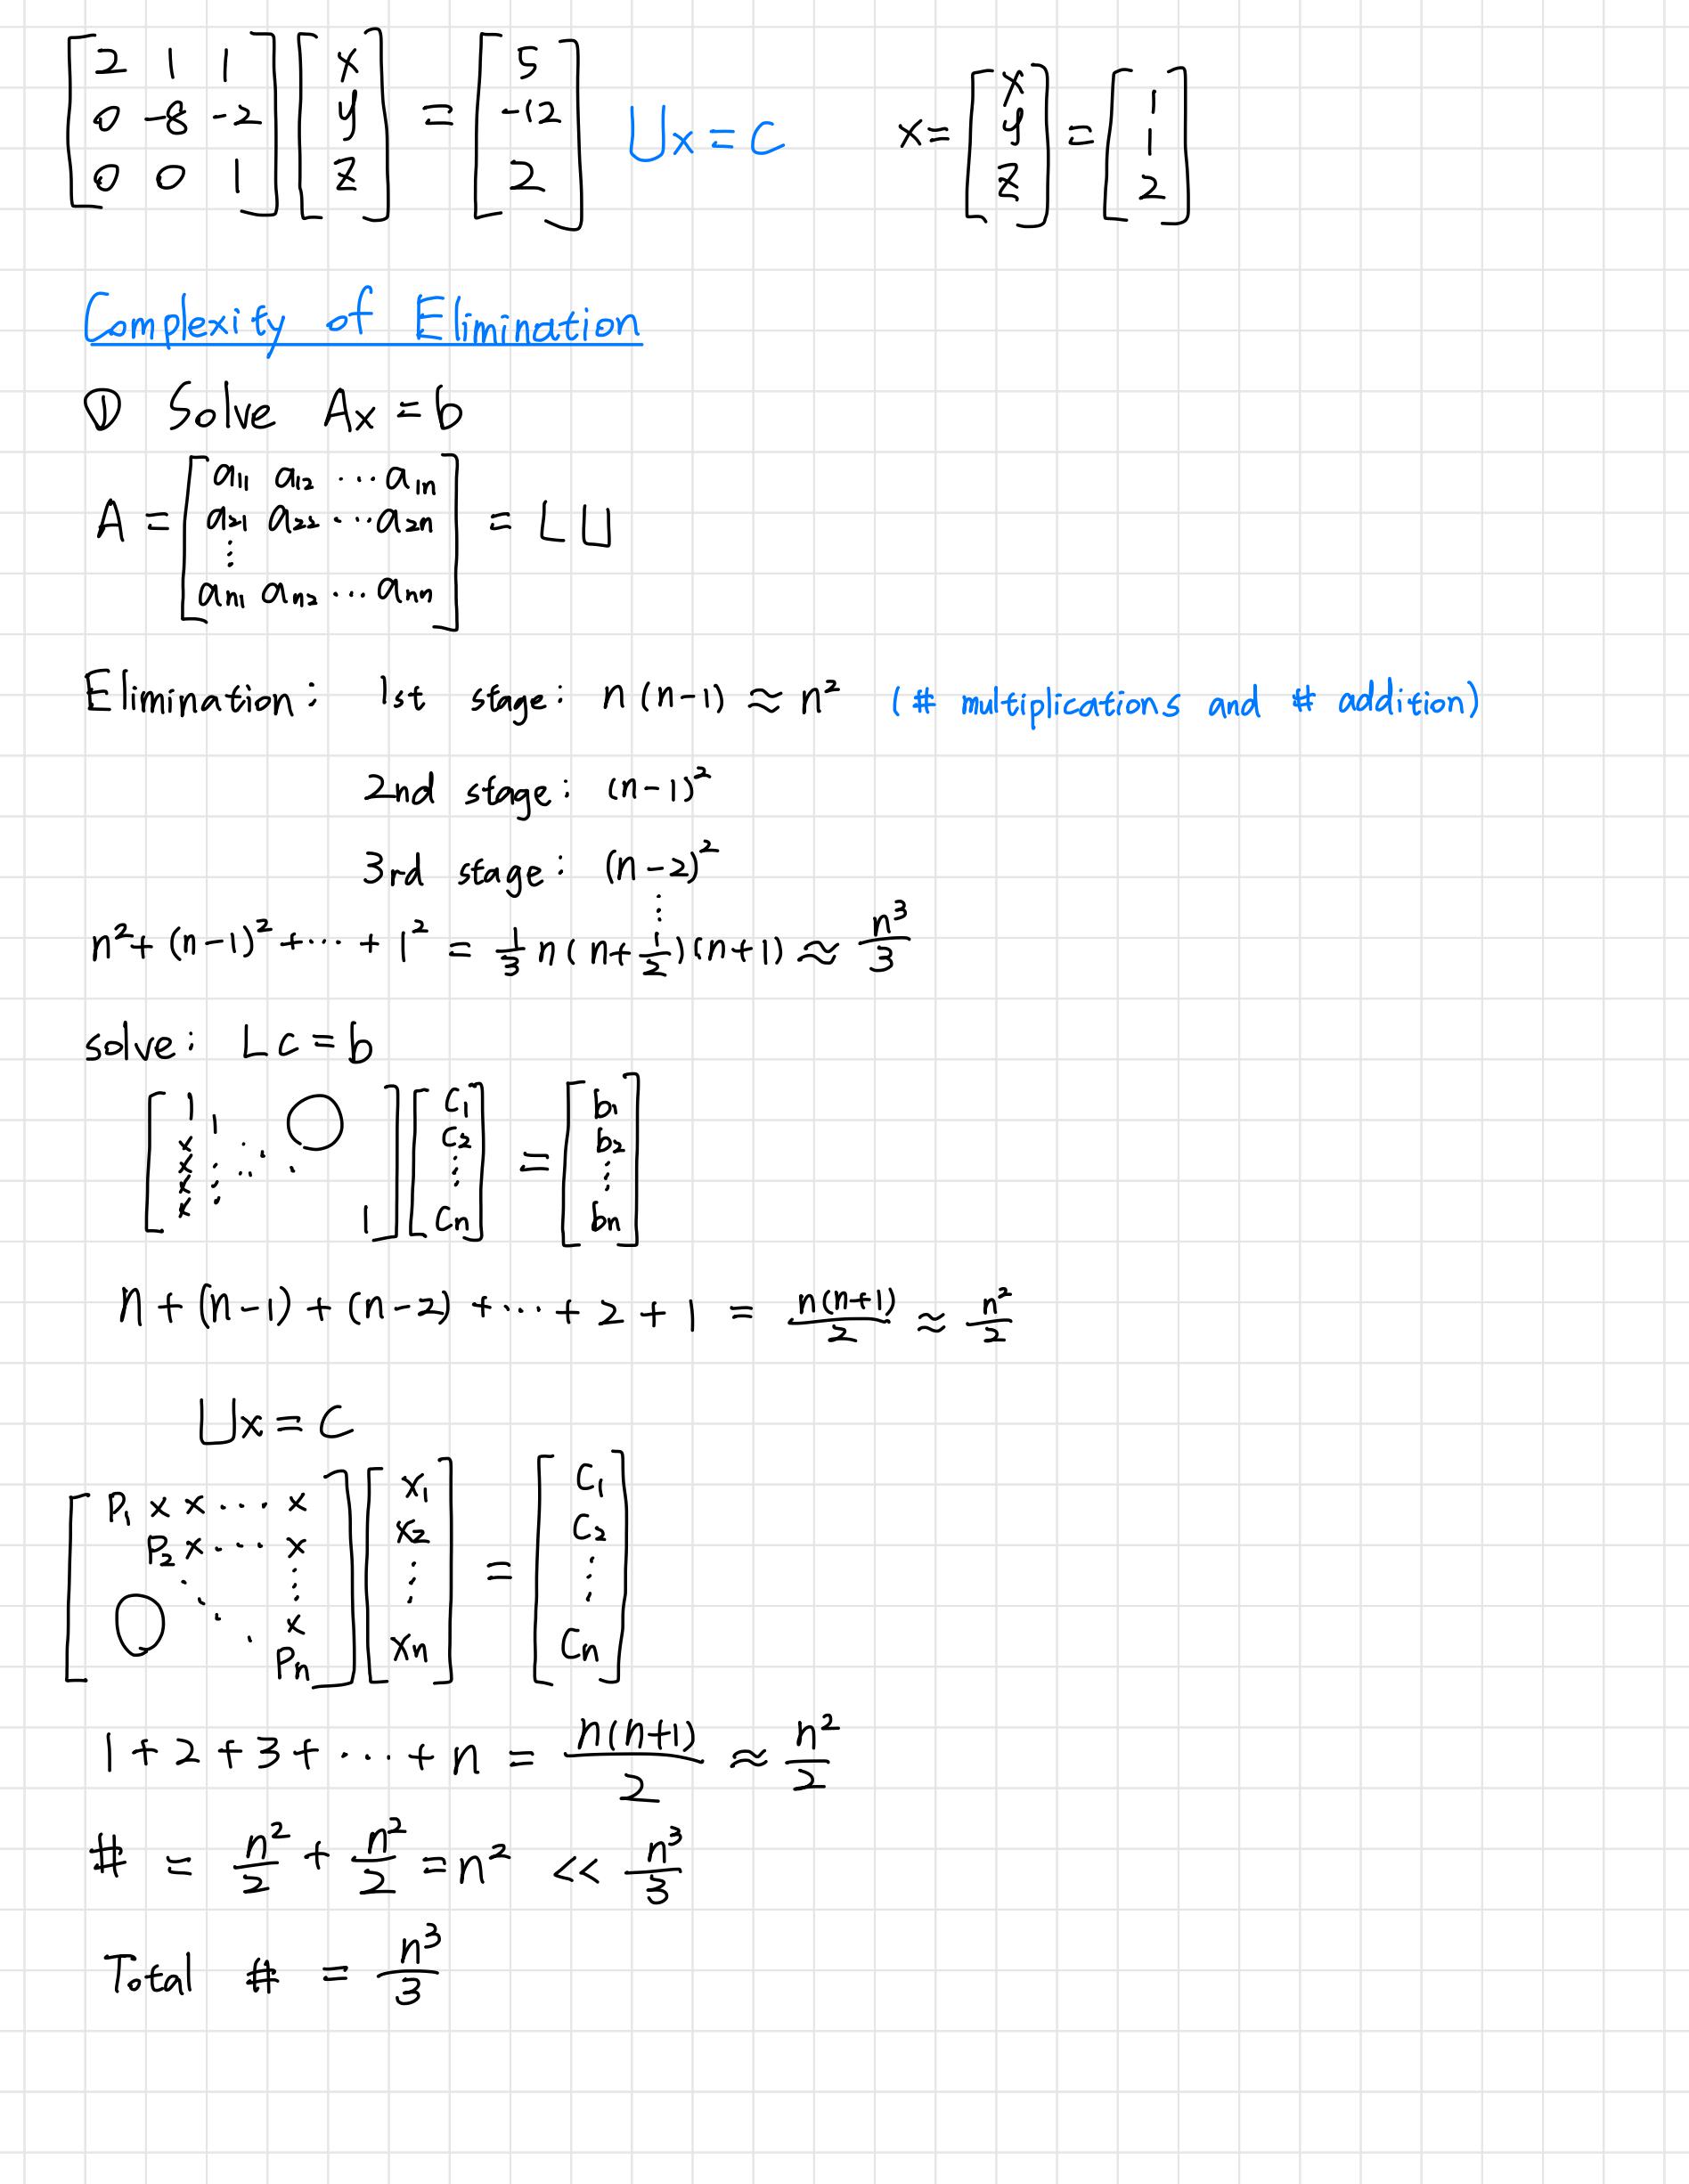 [2 1 1; 0 -8 -2; 0 0 1] [x; y; z] = [5; -12; 2] Ux = c x = [x; y; z] = [1; 1; 2]
Complexity of Elimination
① Solve Ax = b
A = [a₁₁ a₁₂ ⋯ a₁ₙ; a₂₁ a₂₂ ⋯ a₂ₙ; ⋮; aₙ₁ aₙ₂ ⋯ aₙₙ] = LU
Elimination: 1st stage: n(n-1) ≈ n² (# multiplications and # addition)
2nd stage: (n-1)²
3rd stage: (n-2)²
⋮
n² + (n-1)² + ⋯ + 1² = 1/3 n(n+1/2)(n+1) ≈ n³/3
solve: Lc = b
[1; x 1 O; x ⋮ ⋱; x ⋮; x 1] [c₁; c₂; ⋮; cₙ] = [b₁; b₂; ⋮; bₙ]
n + (n-1) + (n-2) + ⋯ + 2 + 1 = n(n+1)/2 ≈ n²/2
Ux = c
[P₁ x x ⋯ x; P₂ x ⋯ x; ⋱ ⋮; O ⋱ x; Pₙ] [x₁; x₂; ⋮; xₙ] = [c₁; c₂; ⋮; cₙ]
1 + 2 + 3 + ⋯ + n = n(n+1)/2 ≈ n²/2
# = n²/2 + n²/2 = n² << n³/3
Total # = n³/3